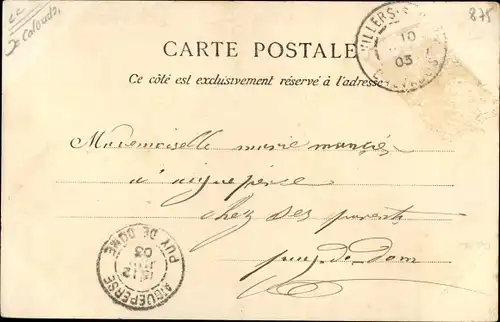 875
CARTE POSTALE
Ce côté est exclusivement réservé à l'adresse
VILLERS
10
03
Mademoiselle marie
a aigueperce
chez ses parents
puy-de-dom
AIGUEPERSE
12
03
PUY DE DOME